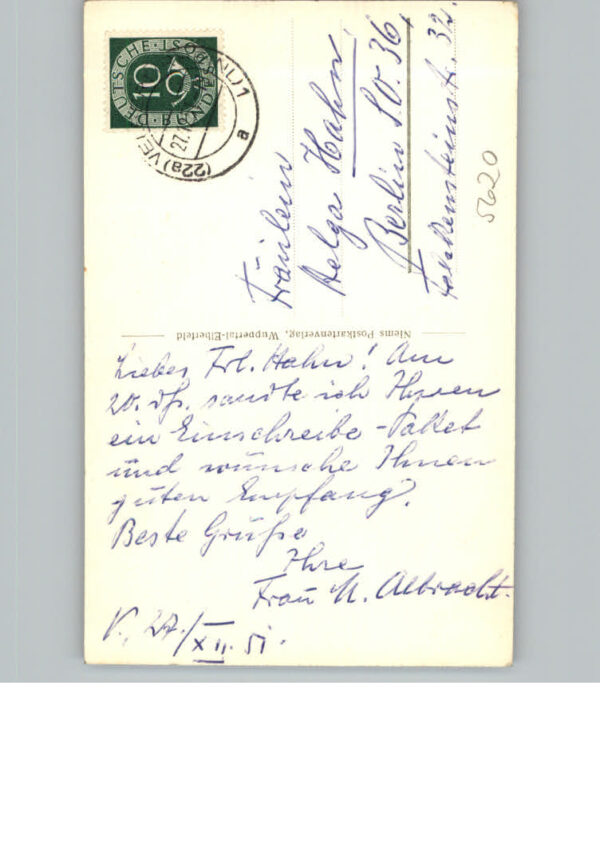 DEUTSCHE BUNDESPOST
10
(22a) VEL
(RHEINL) 1
27.
a
Fräulein
Helga Hahn
Berlin S.O. 36,
Falkensteinstr. 32.
5620
Niems Postkartenverlag, Wuppertal-Elberfeld
Liebes Frl. Hahn! Am
20. ds. sandte ich Ihnen
ein Einschreibe-Paket
und wünsche Ihnen
guten Empfang.
Beste Grüße
Ihre
Frau M. Albracht.
V., 27./XII. 51.